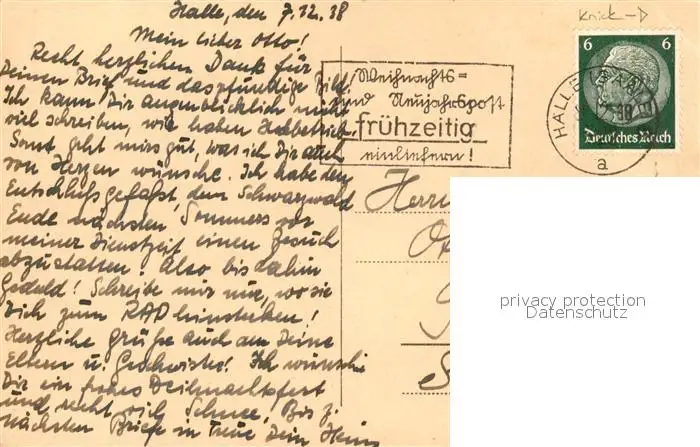 Halle, den 7.12.38
Mein lieber Otto!
Recht herzlichen Dank für
Deinen Brief und das pfundige Bild.
Ich kann Dir augenblicklich nicht
viel schreiben, wir haben
Sonst geht mirs gut, was ich Dir auch
von Herzen wünsche. Ich habe den
Entschluß gefaßt, dem Schwarzwald
Ende nächsten Sommers vor
meiner Dienstzeit einen Besuch
abzustatten! Also bis dahin
Geduld! Schreibe mir nur, wo sie
Dich zum RAD hinstecken!
Herzliche Grüße auch an Deine
Eltern u. Geschwister! Ich wünsche
Dir ein frohes Weihnachtsfest
und recht viel Schnee! Bis z.
nächsten Briefe in Treue Dein Heinz
Weihnachts=
und Neujahrspost
frühzeitig
einliefern!
Knick-D
6 6
Deutsches Reich
HALLE (SAALE)
a
Herrn
privacy protection
Datenschutz